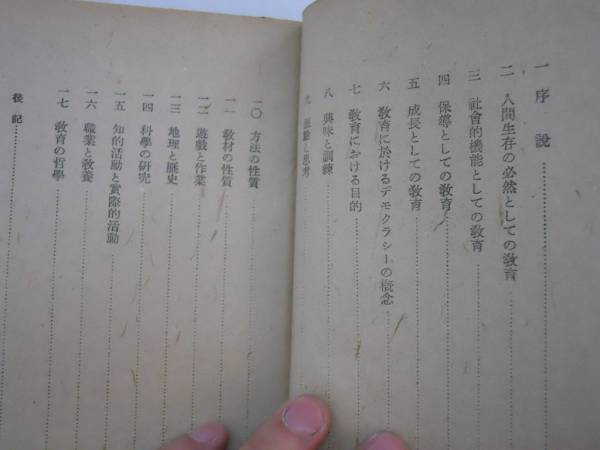 一 序說
二 人間生存の必然としての敎育
三 社會的機能としての敎育
四 保導としての敎育
五 成長としての敎育
六 敎育に於けるデモクラシーの概念
七 敎育における目的
八 興味と訓練
九 經驗と思考
一〇 方法の性質
一一 敎材の性質
一二 遊戲と作業
一三 地理と歷史
一四 科學の硏究
一五 知的活動と實際的活動
一六 職業と敎養
一七 敎育の哲學
後記